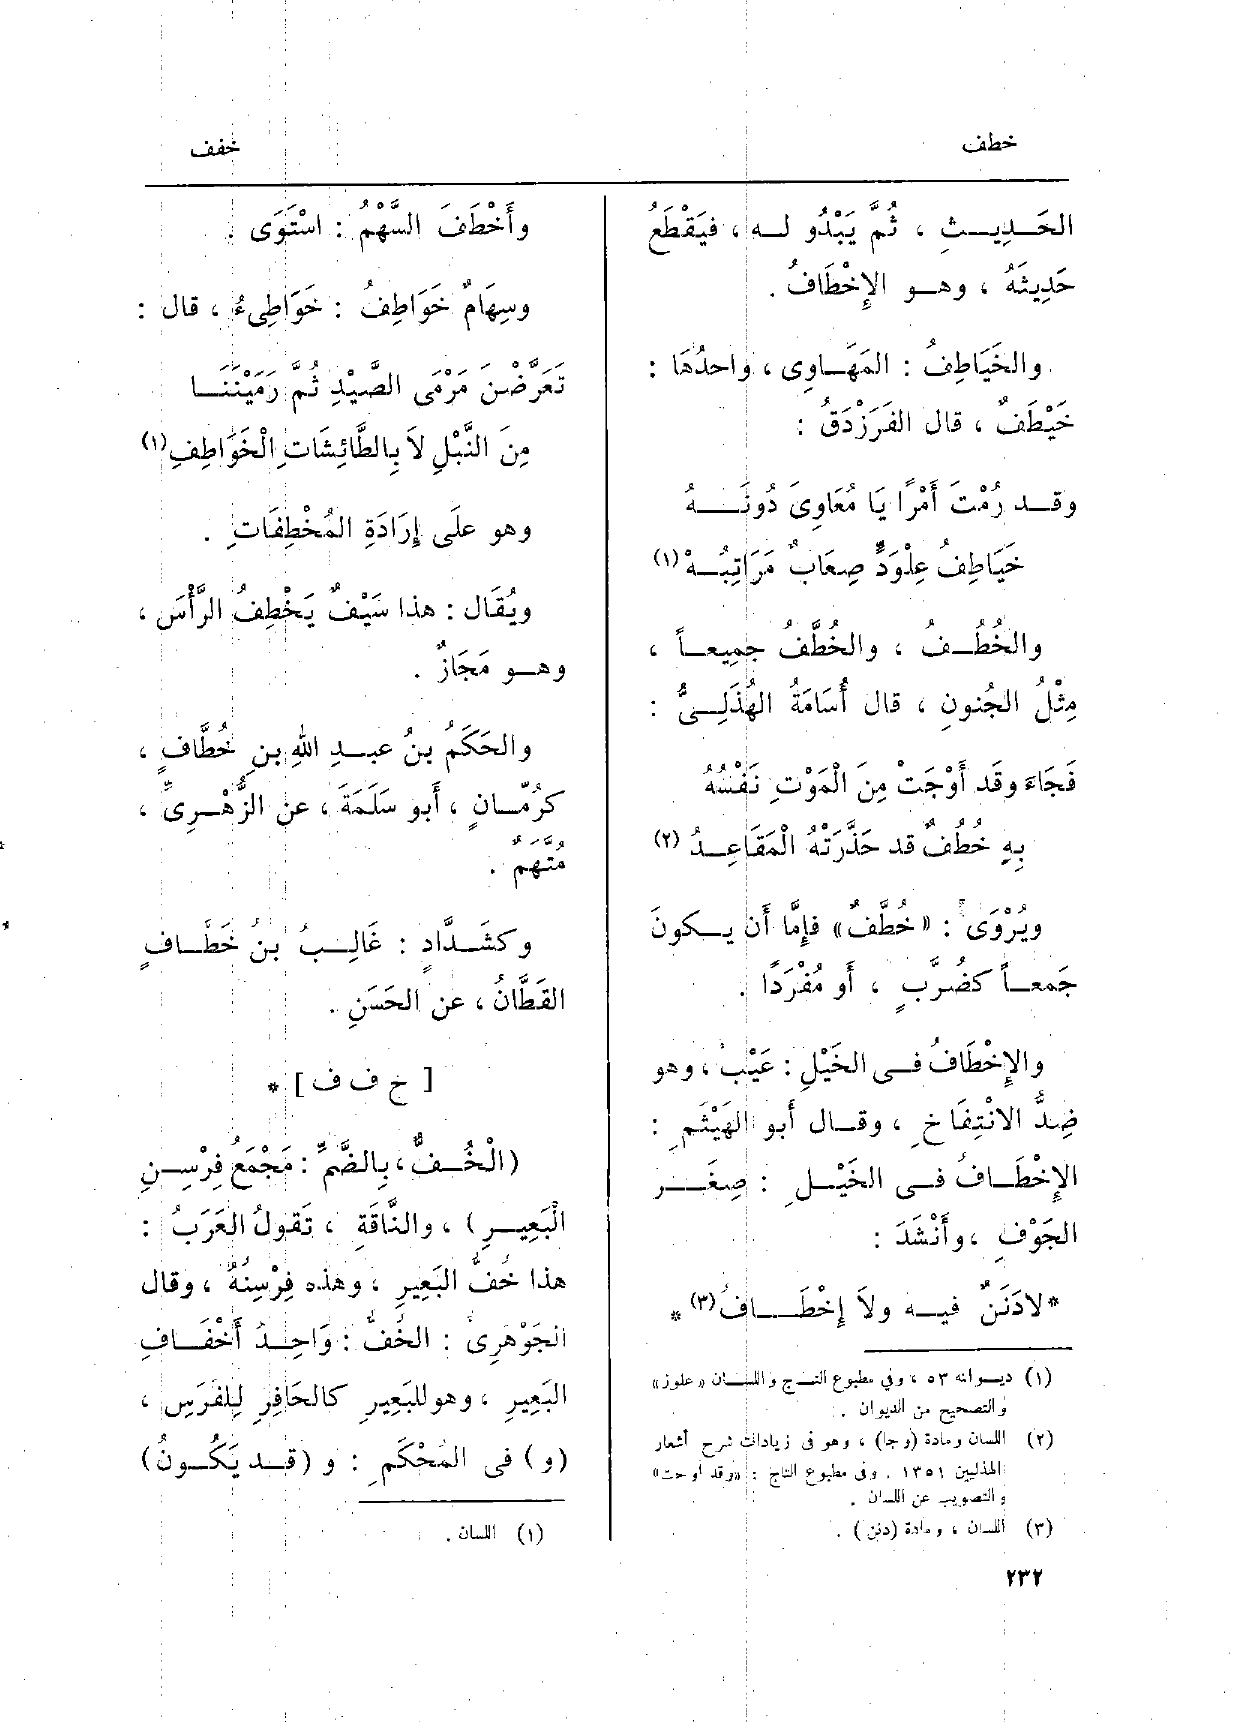 خطف
خفف
الحَـدِيـثِ ، ثُمَّ يَبْدُو لـه ، فيَقْطَعُ
حَدِيثَهُ ، وهـو الإِخْطَافُ .
والخَيَاطِفُ : المَهَـاوِى ، واحدُهَا :
خَيْطَفٌ ، قال الفَرَزْدَقُ :
وقـد رُمْتَ أَمْرًا يَا مُعَاوِىَ دُونَـهُ
خَيَاطِفُ عِلْوَدٍّ صِعَابٌ مَرَاتِبُـهْ (١)
والخُطُـفُ ، والخُطَّفُ جميعـاً ،
مِثْلُ الجُنونِ ، قال أُسَامَةُ الهُذَلِـىُّ :
فَجَاءَ وقَد أَوْجَتْ مِنَ الْمَوْتِ نَفْسُهُ
بِهِ خُطُفٌ قد حَذَّرَتْهُ الْمَقَاعِـدُ (٢)
ويُرْوَى : «خُطَّفٌ» فإِمَّا أَن يـكونَ
جَمعـاً كضُرَّبٍ ، أَو مُفْرَدًا .
والإِخْطَافُ فـى الخَيْلِ : عَيْبٌ ، وهو
ضِدُّ الانْتِفَاخِ ، وقـال أَبو الهَيْثَمِ :
الإِخْطَـافُ فـى الخَيْـلِ : صِغَـر
الجَوْفِ ، وأَنْشَدَ :
*لادَنَنٌ فيـه ولاَ إِخْطَـافُ (٣) *
(١) ديـوانه ٥٣ ، وفي مطبوع التـاج واللسـان «علوز»
والتصحيح من الديوان .
(٢) اللسان ومادة (وجا) ، وهو فى زيادات شرح أشعار
الهذليين ١٣٥١ . وفى مطبوع التاج : «وقد أوحت»
والتصويب عن اللسان .
(٣) اللسان ، ومادة (دنن) .
وأَخْطَفَ السَّهْمُ : اسْتَوَى .
وسِهَامٌ خَوَاطِفُ : خَوَاطِىءُ ، قال :
تَعَرَّضْـنَ مَرْمَى الصَّيْدِ ثُمَّ رَمَيْنَنَـا
مِنَ النَّبْلِ لاَ بِالطَّائِشَاتِ الْخَوَاطِفِ (١)
وهو علَى إِرَادَةِ المُخْطِفَاتِ .
ويُقَال : هذا سَيْفٌ يَخْطِفُ الرَّأْسَ ،
وهـو مَجَازٌ .
والحَكَمُ بنُ عبـدِ اللهِ بنِ خُطَّافٍ ،
كرُمَّـانٍ ، أَبو سَلَمَةَ ، عن الزُّهْـرِىِّ ،
مُتَّهَمٌ .
وكشَـدَّادٍ : غَالِـبُ بنُ خَطَّـافٍ
القَطَّانُ ، عن الحَسَنِ .
[ خ ف ف ] *
(الْخُـفُّ ، بِالضَّمِّ : مَجْمَعُ فِرْسِـنِ
الْبَعِيـرِ) ، والنَّاقَةِ ، تَقولُ العَرَبُ :
هذا خُفُّ البَعِيرِ ، وهذه فِرْسِنُهُ ، وقال
الجَوْهَرِىُّ : الخُفُّ : وَاحِـدُ أَخْفَـافِ
البَعِيرِ ، وهو للبَعِيرِ كالحَافِرِ لِلفَرَسِ ،
(و) فى المُحْكَمِ : و (قـد يَكُـونُ)
(١) اللسان .
٢٣٢